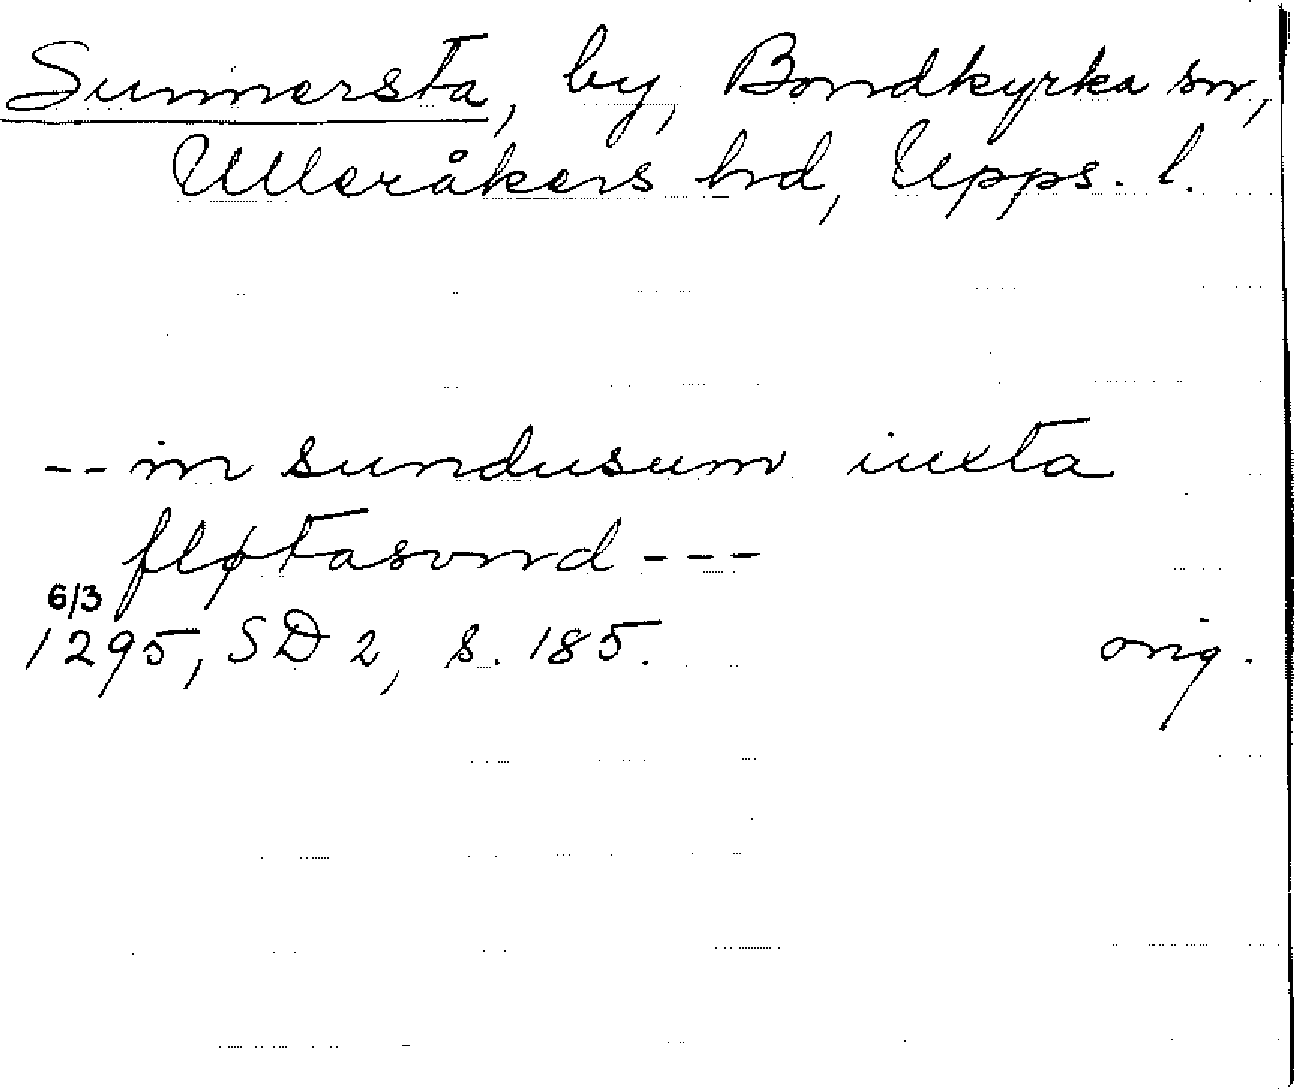 Sunnersta, by, Bondkyrka sn,
Ulleråkers hd, Upps. l.
-- in sundusum iuxta
fløtasund ---
6/3
1295, SD 2, s. 185. orig.